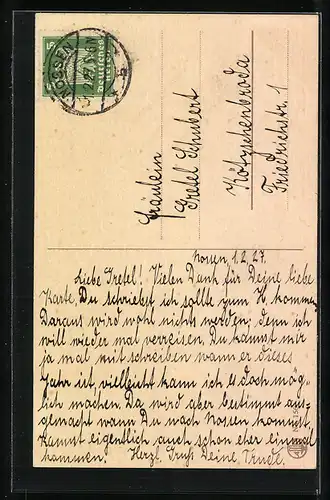 NOSSEN
Deutsches Reich
5
Fräulein
Gretel Schubert
Kötzschenbroda
Friedrichstr. 1
Nossen, 1.2.27.
Liebe Gretel! Vielen Dank für Deine liebe
Karte. Du schriebst ich sollte zum H. kommen.
Daraus wird wohl nichts werden, denn ich
will wieder mal verreisen. Du kannst mir
ja mal mit schreiben wann er dieses
Jahr ist, vielleicht kann ich es doch mög-
lich machen. Da wird aber bestimmt aus-
gemacht wann Du nach Nossen kommst.
Kannst eigentlich auch schon eher einmal
kommen. Herzl. Gruß Deine Trudl.